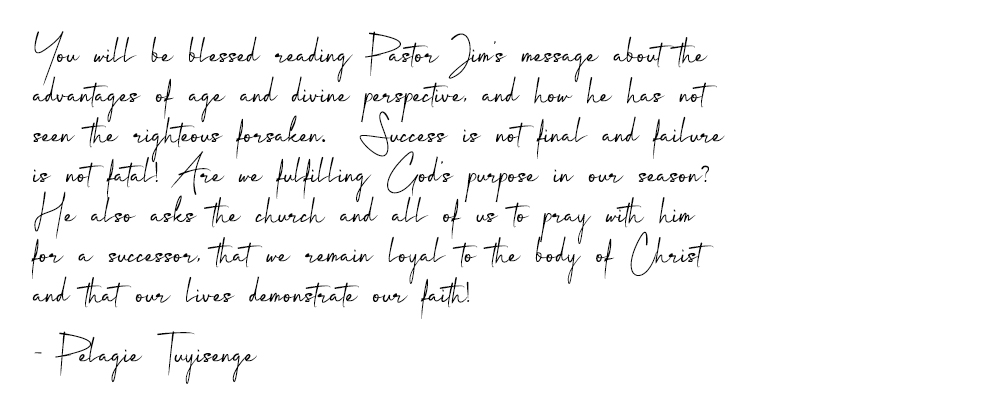 You will be blessed reading Pastor Jim's message about the
advantages of age and divine perspective, and how he has not
seen the righteous forsaken.  Success is not final and failure
is not fatal! Are we fulfilling God's purpose in our season?
He also asks the church and all of us to pray with him
for a successor, that we remain loyal to the body of Christ
and that our lives demonstrate our faith!
- Pelagie Tuyisenge